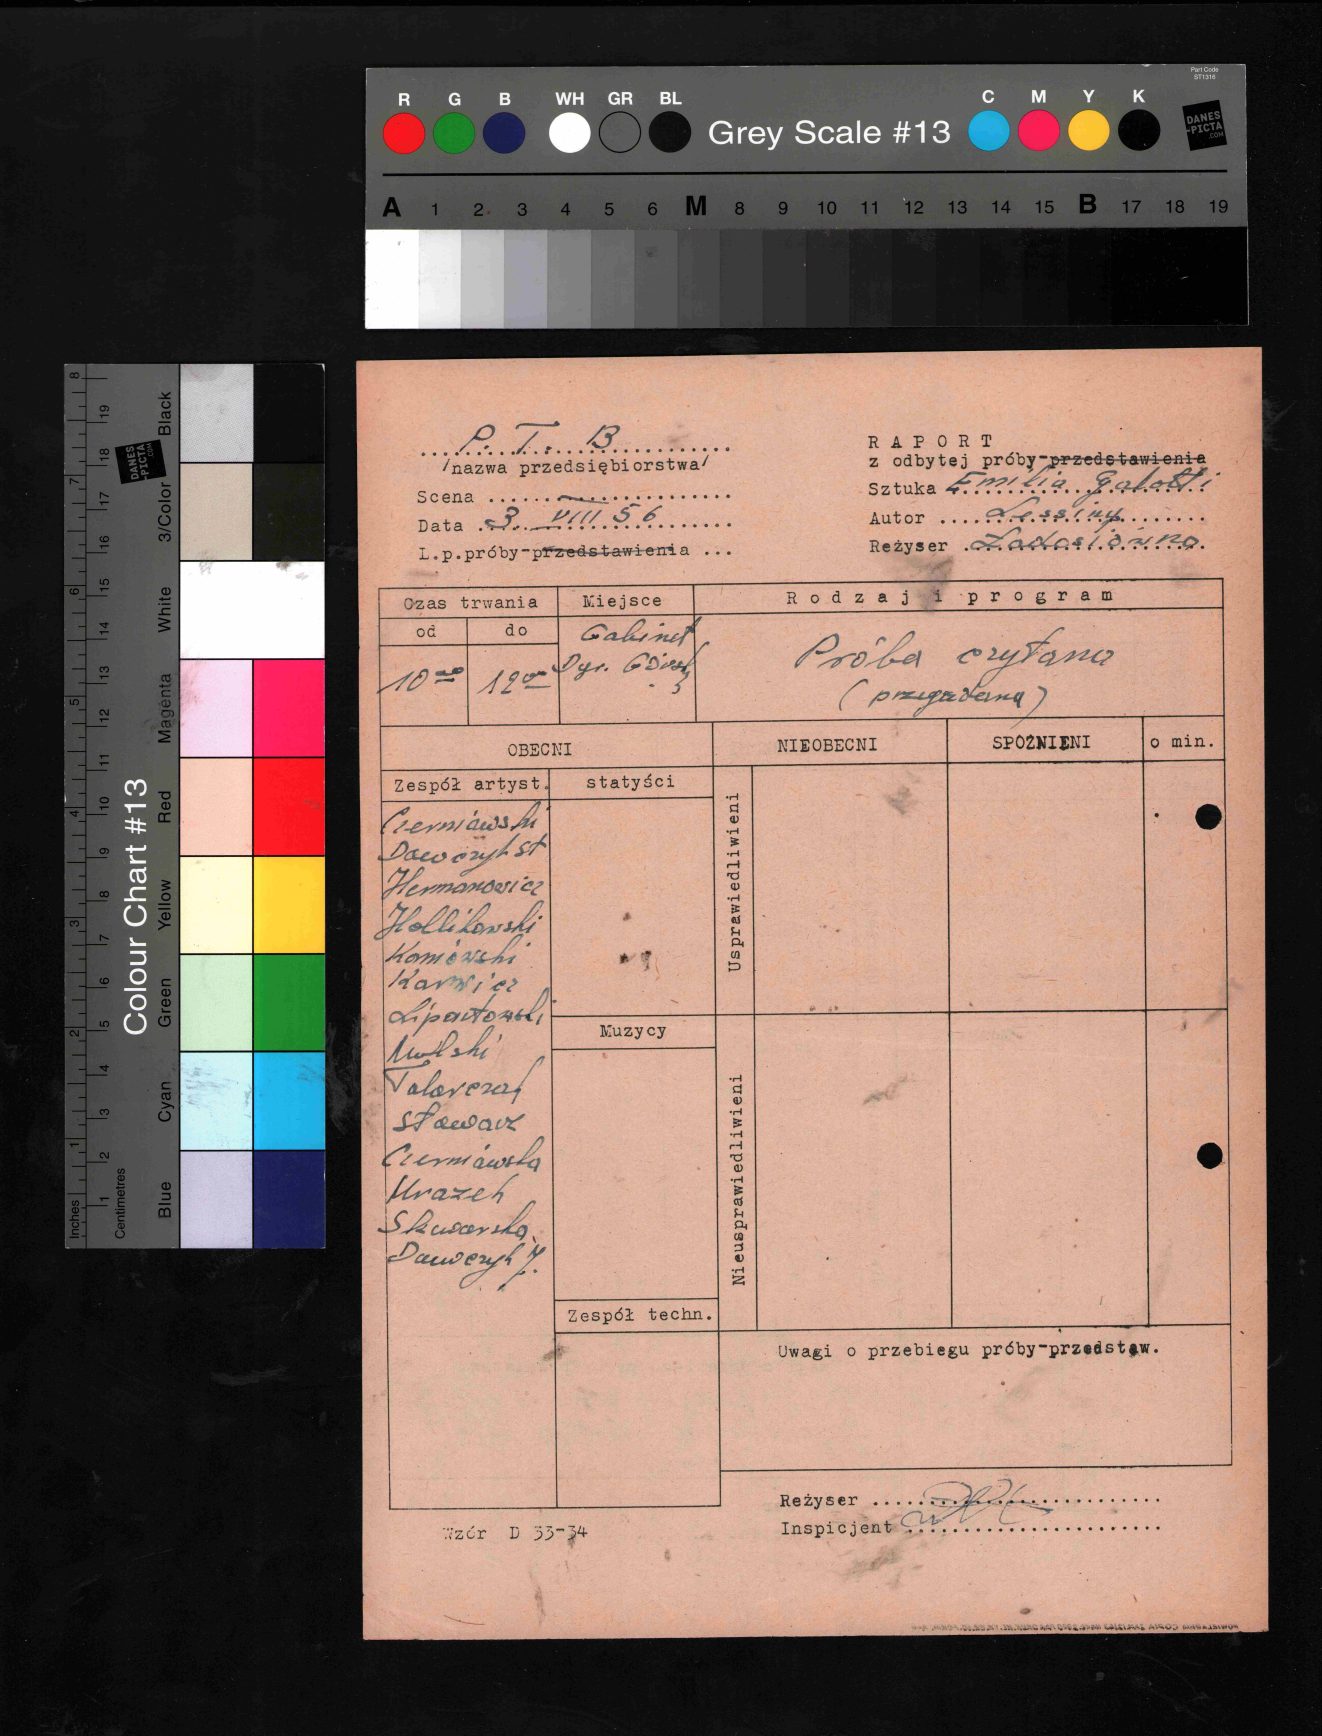 Part Code
ST1316
R G B WH GR BL Grey Scale #13 C M Y K
DANES
-PICTA
.COM
A 1 2 3 4 5 6 M 8 9 10 11 12 13 14 15 B 17 18 19
Colour Chart #13
Blue Cyan Green Yellow Red Magenta White 3/Color Black
Inches 1 2 3 4 5 6 7 8
Centimetres 1 2 3 4 5 6 7 8 9 10 11 12 13 14 15 16 17 18 19
DANES
-PICTA
.COM
P. T. B
/nazwa przedsiębiorstwa/
Scena
Data 3. VIII 56
L.p.próby-przedstawienia ...
RAPORT
z odbytej próby-przedstawienia
Sztuka Emilia Galotti
Autor Lessing
Reżyser Ładosiówna
Czas trwania Miejsce Rodzaj i program
od do
10 00 12 00
Gabinet
Dyr.
Próba czytana
(przegadana)
OBECNI NIEOBECNI SPÓŹNIENI o min.
Zespół artyst. statyści
Czerniawski
Dawczyk St
Hermanowicz
Komówski
Karwicz
Tatarczak
Sławarz
Czerniawska
Mrazek
Skwarska
Dawczyk J.
Usprawiedliwieni
Muzycy
Nieusprawiedliwieni
Zespół techn.
Uwagi o przebiegu próby-przedstaw.
Reżyser
Inspicjent
Wzór D 33-34